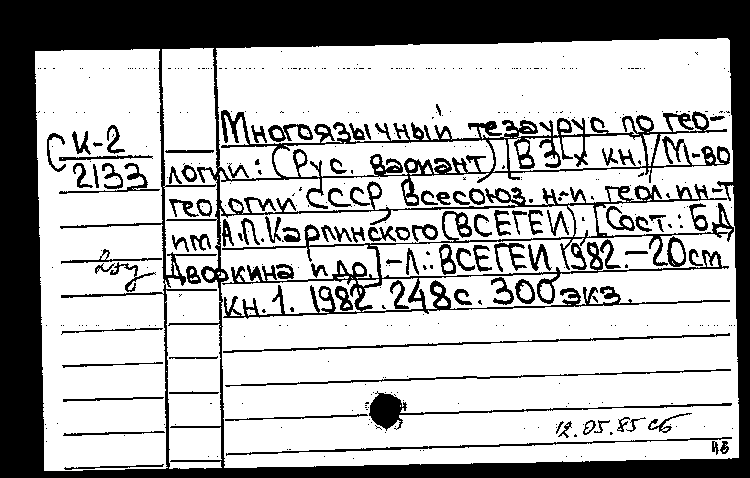 СК-2
2133
Многоязычный тезаурус по гео-
логии: (Рус. вариант). [В 3-х кн.]/М-во
геологии СССР, Всесоюз. н-и. геол. ин-т
им. А.П. Карпинского (ВСЕГЕИ); [Сост.: Б.Д.
Дворкина и др.] -Л.: ВСЕГЕИ, 1982.-20см.
кн. 1. 1982. 248с. 300экз.
12.05.85 сб